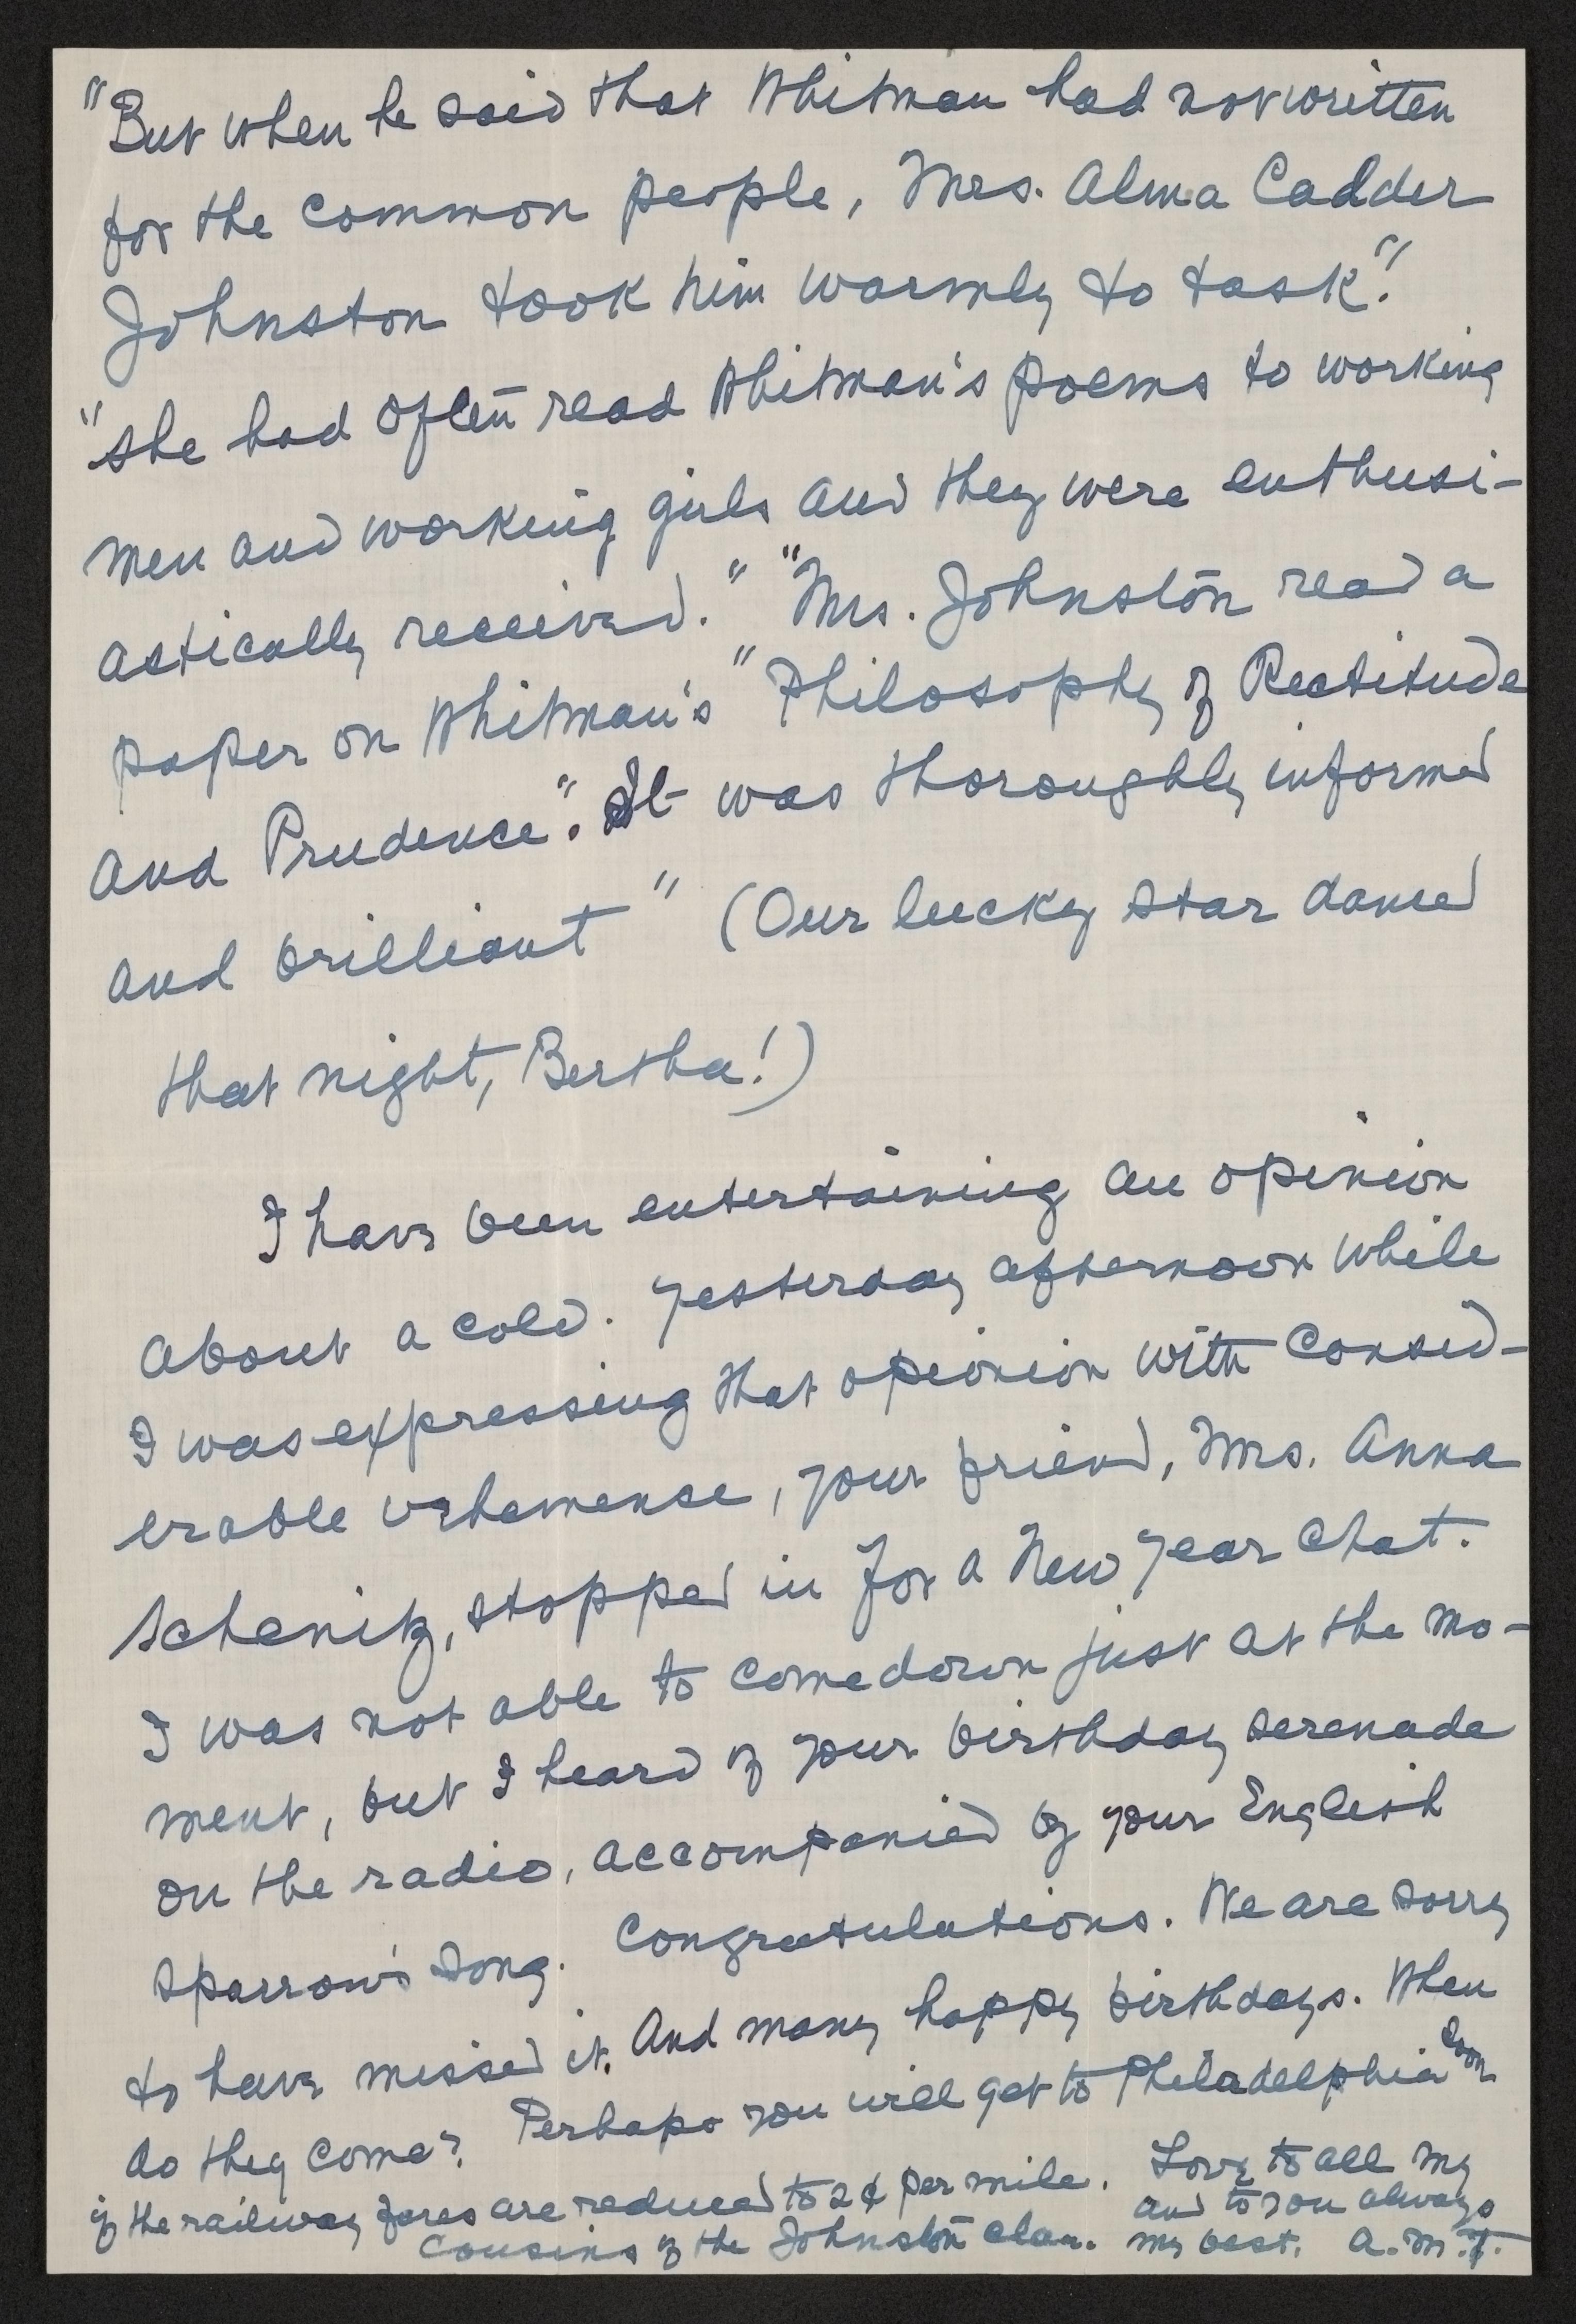 "But when he said that Whitman had not written
for the common people, Mrs. Alma Cadder
Johnston took him warmly to task."
"She had often read Whitman's poems to working
men and working girls and they were enthusi-
astically received." "Mrs. Johnston read a
paper on Whitman's "Philosophy of Rectitude
and Prudence". It was thoroughly informed
and brilliant" (Our lucky star danced
that night, Bertha!)
I have been entertaining an opinion
about a cold. Yesterday afternoon while
I was expressing that opinion with consid-
erable vehemense, your friend, Mrs. Anna
stopped in for a New Year chat.
I was not able to come down just at the mo-
ment, but I heard of your birthday serenade
on the radio, accompanied by your English
Sparrow's song. Congratulations. We are sorry
to have missed it. And many happy birthdays. When
do they come? Perhaps you will get to Philadelphia soon
if the railway fares are reduced to 2¢ per mile. Love to all my
cousins of the Johnston clan. and to you always
my best. A.M.T.